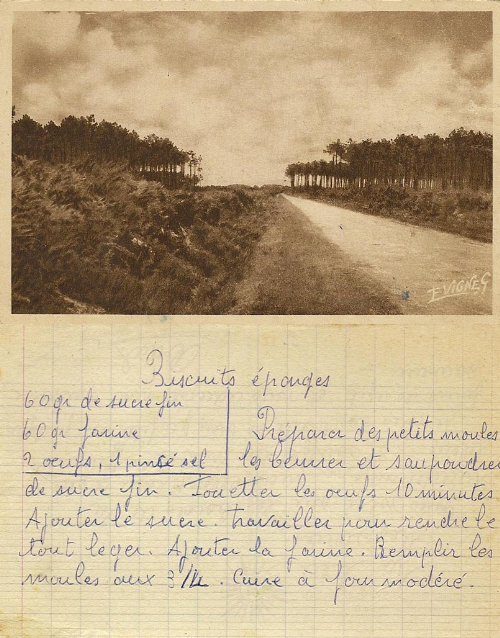 E. VIGNES
Biscuits éponges
60 gr de sucre fin
60 gr farine
2 oeufs, 1 pincé sel
Préparer des petits moules
les beurrer et saupoudrer
de sucre fin. Fouetter les oeufs 10 minutes
Ajouter le sucre. Travailler pour rendre le
tout leger. Ajouter la farine. Remplir les
moules aux 3/4. Cuire à four modéré.